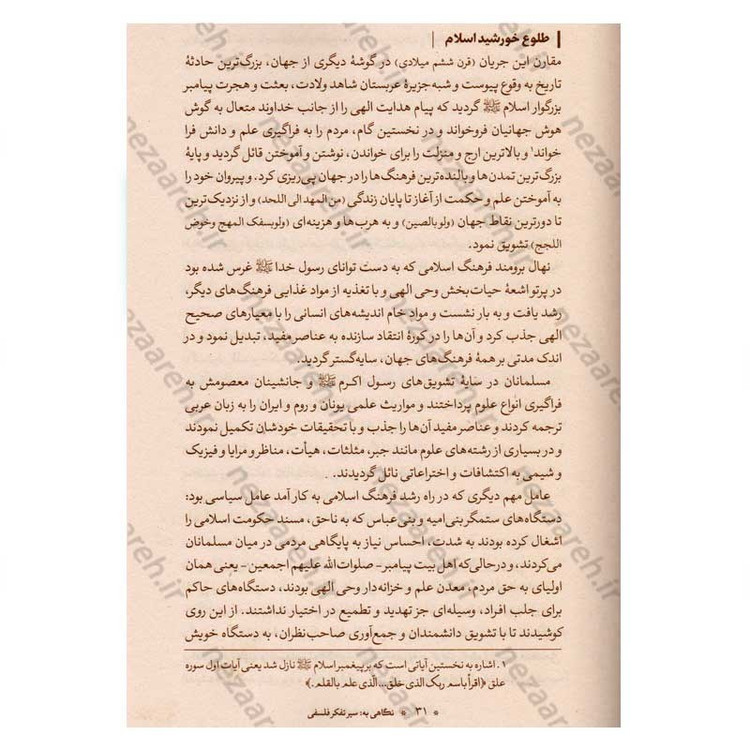 طلوع خورشید اسلام
مقارن این جریان (قرن ششم میلادی) در گوشهٔ دیگری از جهان، بزرگ‌ترین حادثهٔ
تاریخ به وقوع پیوست و شبه‌جزیرهٔ عربستان شاهد ولادت، بعثت و هجرت پیامبر
بزرگوار اسلام ﷺ گردید که پیام هدایت الهی را از جانب خداوند متعال به گوش
هوش جهانیان فروخواند و در نخستین گام، مردم را به فراگیری علم و دانش فرا
خواند۱ و بالاترین ارج و منزلت را برای خواندن، نوشتن و آموختن قائل گردید و پایهٔ
بزرگ‌ترین تمدن‌ها و بالنده‌ترین فرهنگ‌ها را در جهان پی‌ریزی کرد. و پیروان خود را
به آموختن علم و حکمت از آغاز تا پایان زندگی (من المهد الی اللحد) و از نزدیک‌ترین
تا دورترین نقاط جهان (ولو بالصین) و به هر بها و هزینه‌ای (ولو بسفک المهج وخوض
اللجج) تشویق نمود.
نهال برومند فرهنگ اسلامی که به دست توانای رسول خدا ﷺ غرس شده بود
در پرتو اشعهٔ حیات‌بخش وحی الهی و با تغذیه از مواد غذایی فرهنگ‌های دیگر،
رشد یافت و به بار نشست و مواد خام اندیشه‌های انسانی را با معیارهای صحیح
الهی جذب کرد و آن‌ها را در کورهٔ انتقاد سازنده به عناصر مفید، تبدیل نمود و در
اندک مدتی بر همهٔ فرهنگ‌های جهان، سایه‌گستر گردید.
مسلمانان در سایهٔ تشویق‌های رسول اکرم ﷺ و جانشینان معصومش به
فراگیری انواع علوم پرداختند و مواریث علمی یونان و روم و ایران را به زبان عربی
ترجمه کردند و عناصر مفید آن‌ها را جذب و با تحقیقات خودشان تکمیل نمودند
و در بسیاری از رشته‌های علوم مانند جبر، مثلثات، هیأت، مناظر و مرایا و فیزیک
و شیمی به اکتشافات و اختراعاتی نائل گردیدند.
عامل مهم دیگری که در راه رشد فرهنگ اسلامی به کار آمد عامل سیاسی بود:
دستگاه‌های ستمگر بنی‌امیه و بنی‌عباس که به ناحق، مسند حکومت اسلامی را
اشغال کرده بودند به شدت، احساس نیاز به پایگاهی مردمی در میان مسلمانان
می‌کردند، و درحالی‌که اهل بیت پیامبر- صلوات الله علیهم اجمعین - یعنی همان
اولیای به حق مردم، معدن علم و خزانه‌دار وحی الهی بودند، دستگاه‌های حاکم
برای جلب افراد، وسیله‌ای جز تهدید و تطمیع در اختیار نداشتند. از این روی
کوشیدند تا با تشویق دانشمندان و جمع‌آوری صاحب‌نظران، به دستگاه خویش
۱. اشاره به نخستین آیاتی است که بر پیغمبر اسلام ﷺ نازل شد یعنی آیات اول سوره
علق ﴿اقرأ باسم ربک الذی خلق... الّذی علم بالقلم.﴾
۳۱ نگاهی به: سیر تفکر فلسفی
nezaareh.ir